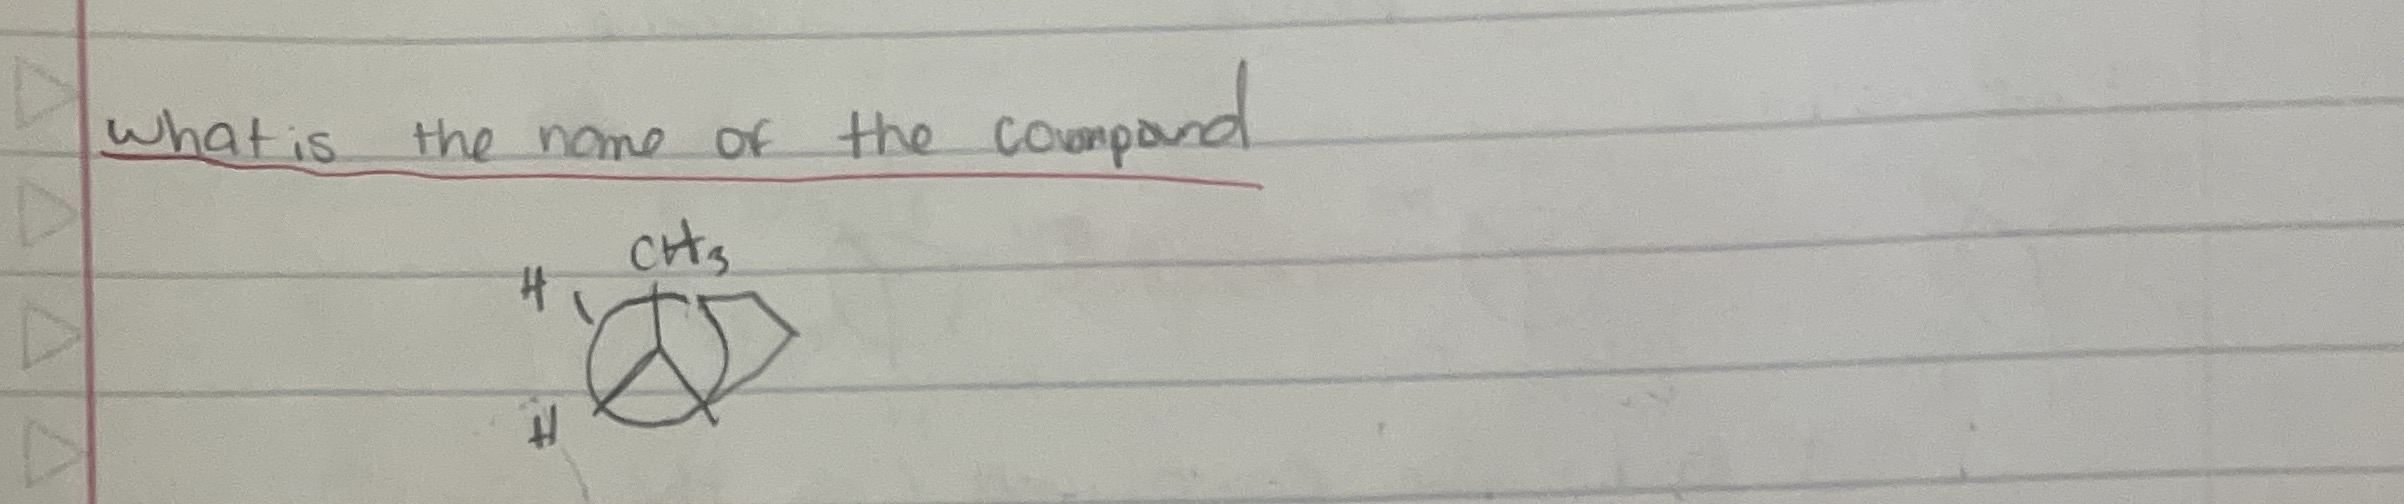 what is the name of the coumpand
CH3
H
H